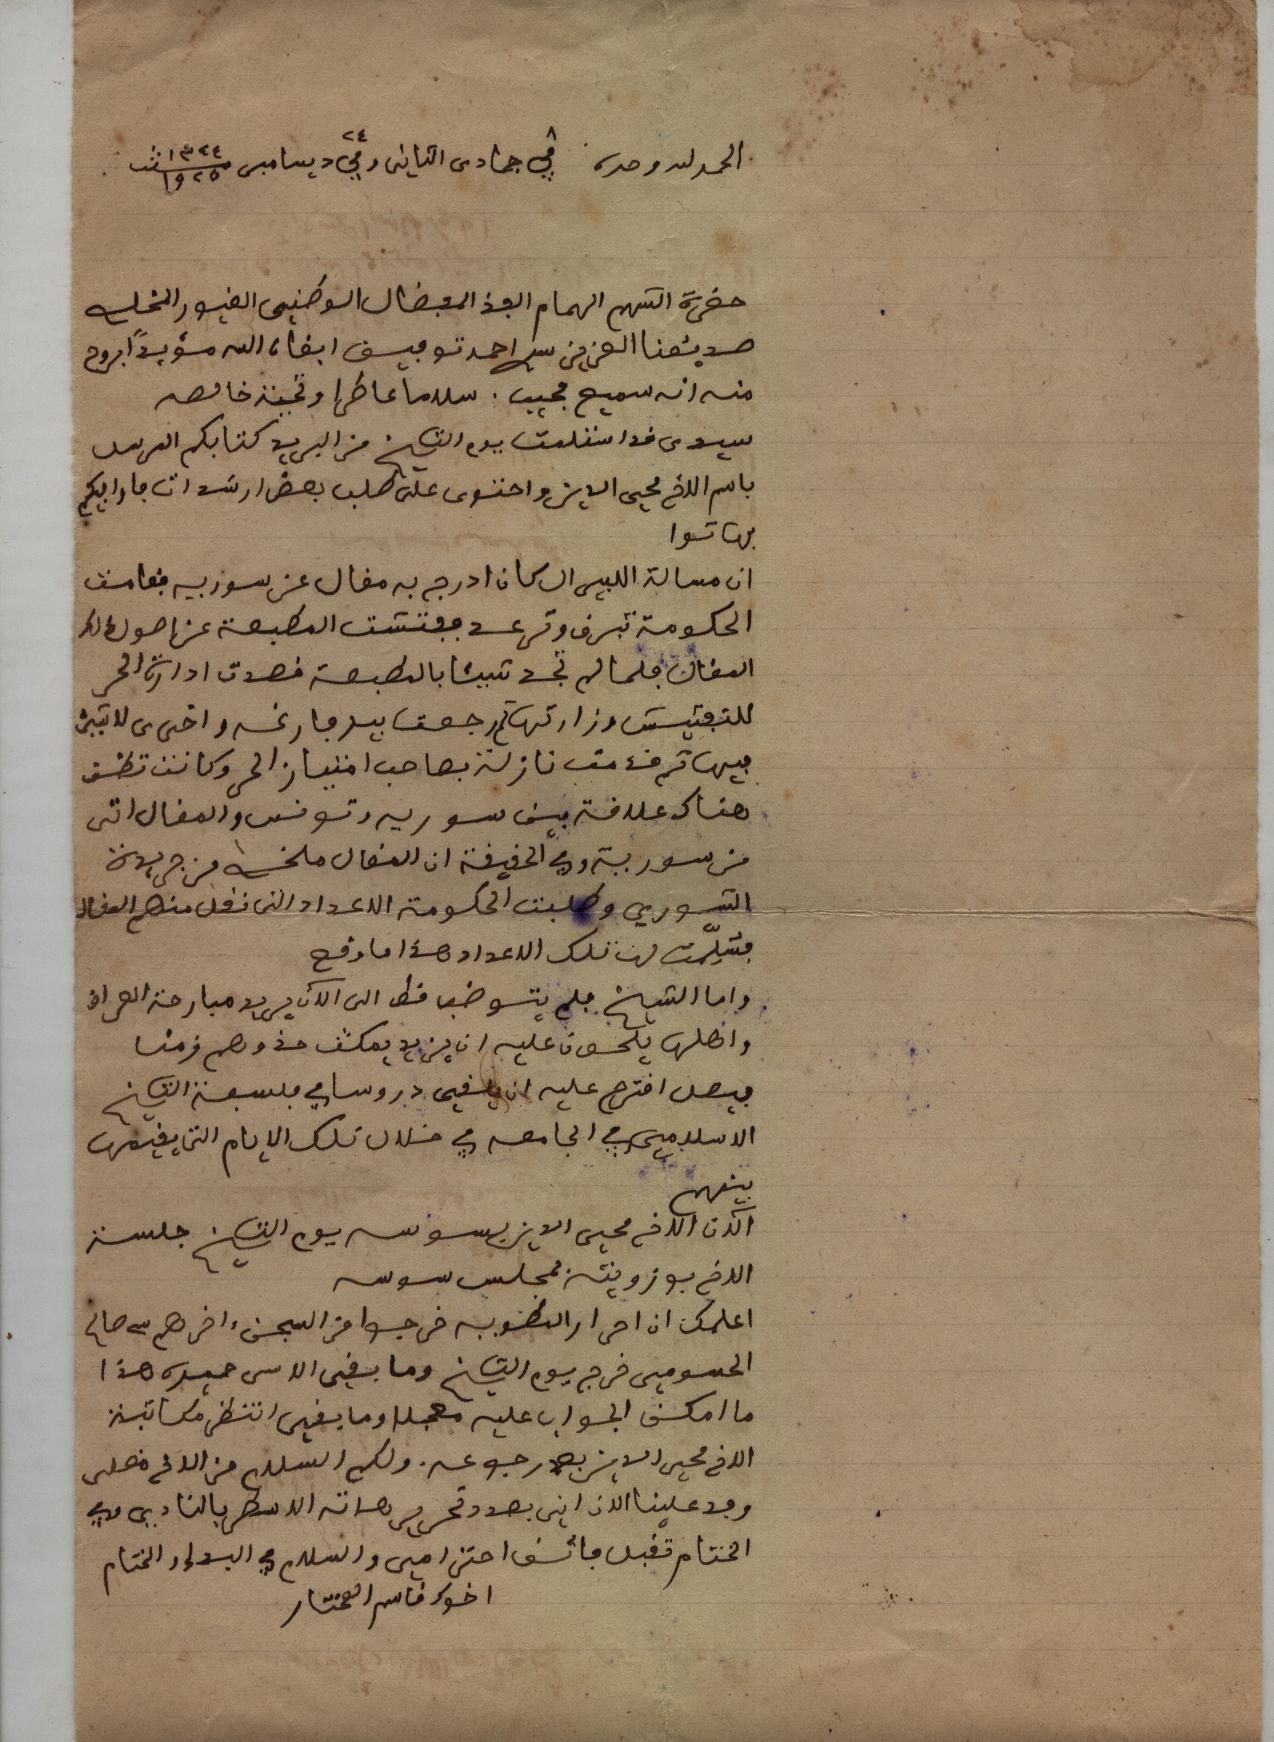 الحمد لله وحده في ٨ جمادى الثاني وفي ٢٤ ديسامبر سنة ١٣٤٤ ١٩٢٥
حضرة الشهم الهمام الفذ المفضال الوطني الغيور المخلص
صديقنا العزيز سي احمد توفيق ابقاه الله مؤيدا بروح
منه انه سميع مجيب . سلاما عاطرا وتحية خالصه
سيدي قد استلمت يوم التاريخ من البريد كتابكم المرسل
باسم الاخ محيي الدين واحتوى على طلب بعض ارشادات فاوافيكم
بها توا
ان مسالة الليبرال كان ادرج به مقال عن سورية فقامت
الحكومة تبرق وترعد ففتشت المطبعة عن اصول ذلك
المقال فلما لم تجد شيئا بالمطبعة قصدت ادارة الحر
للتفتيش وزارتها ثم رجعت بيد فارغه واخرى لا شيئ
فيها ثم قدمت نازلة بصاحب امتياز الحر وكانت تظن
هناك علاقة بين سورية وتونس والمقال اتى
من سورية وفي الحقيقة ان المقال ملخص من جريدة
السوري وطلبت الحكومة الاعداد التي نقل منهم المقال
فسلمت لها تلك الاعداد هذا ما وقع
واما الشيخ فلم يتوظف قط الى الان يريد مبارحة العراق
واهلها يلحون عليه ان يزيد يمكث حذوهم زمنا
فيصل اقترح عليه ان يلقي دروسا في فلسفة التاريخ
الاسلامي في الجامعه في خلال تلك الايام التي يقيمها
بينهم
الان الاخ محيي الدين بسوسه يوم التاريخ جلسة
الاخ بوزوينة بمجلس سوسه
اعلمك ان احرار المظوبه خرجوا من السجن واخرهم سي صالح
الحسومي خرج يوم التاريخ وما بقي الا سي حميده هذا
ما امكن الجواب عليه معجلا وما بقي انتظر مكاتبة
الاخ محيي الدين بعد رجوعه . ولكم السلام من الاخ
وفد علينا الان اني بصدد تحرير هاته الاسطر بالنادي وفي
الختام تقبل فائق احترامي والسلام في البدء والختام
اخوك قاسم المختار